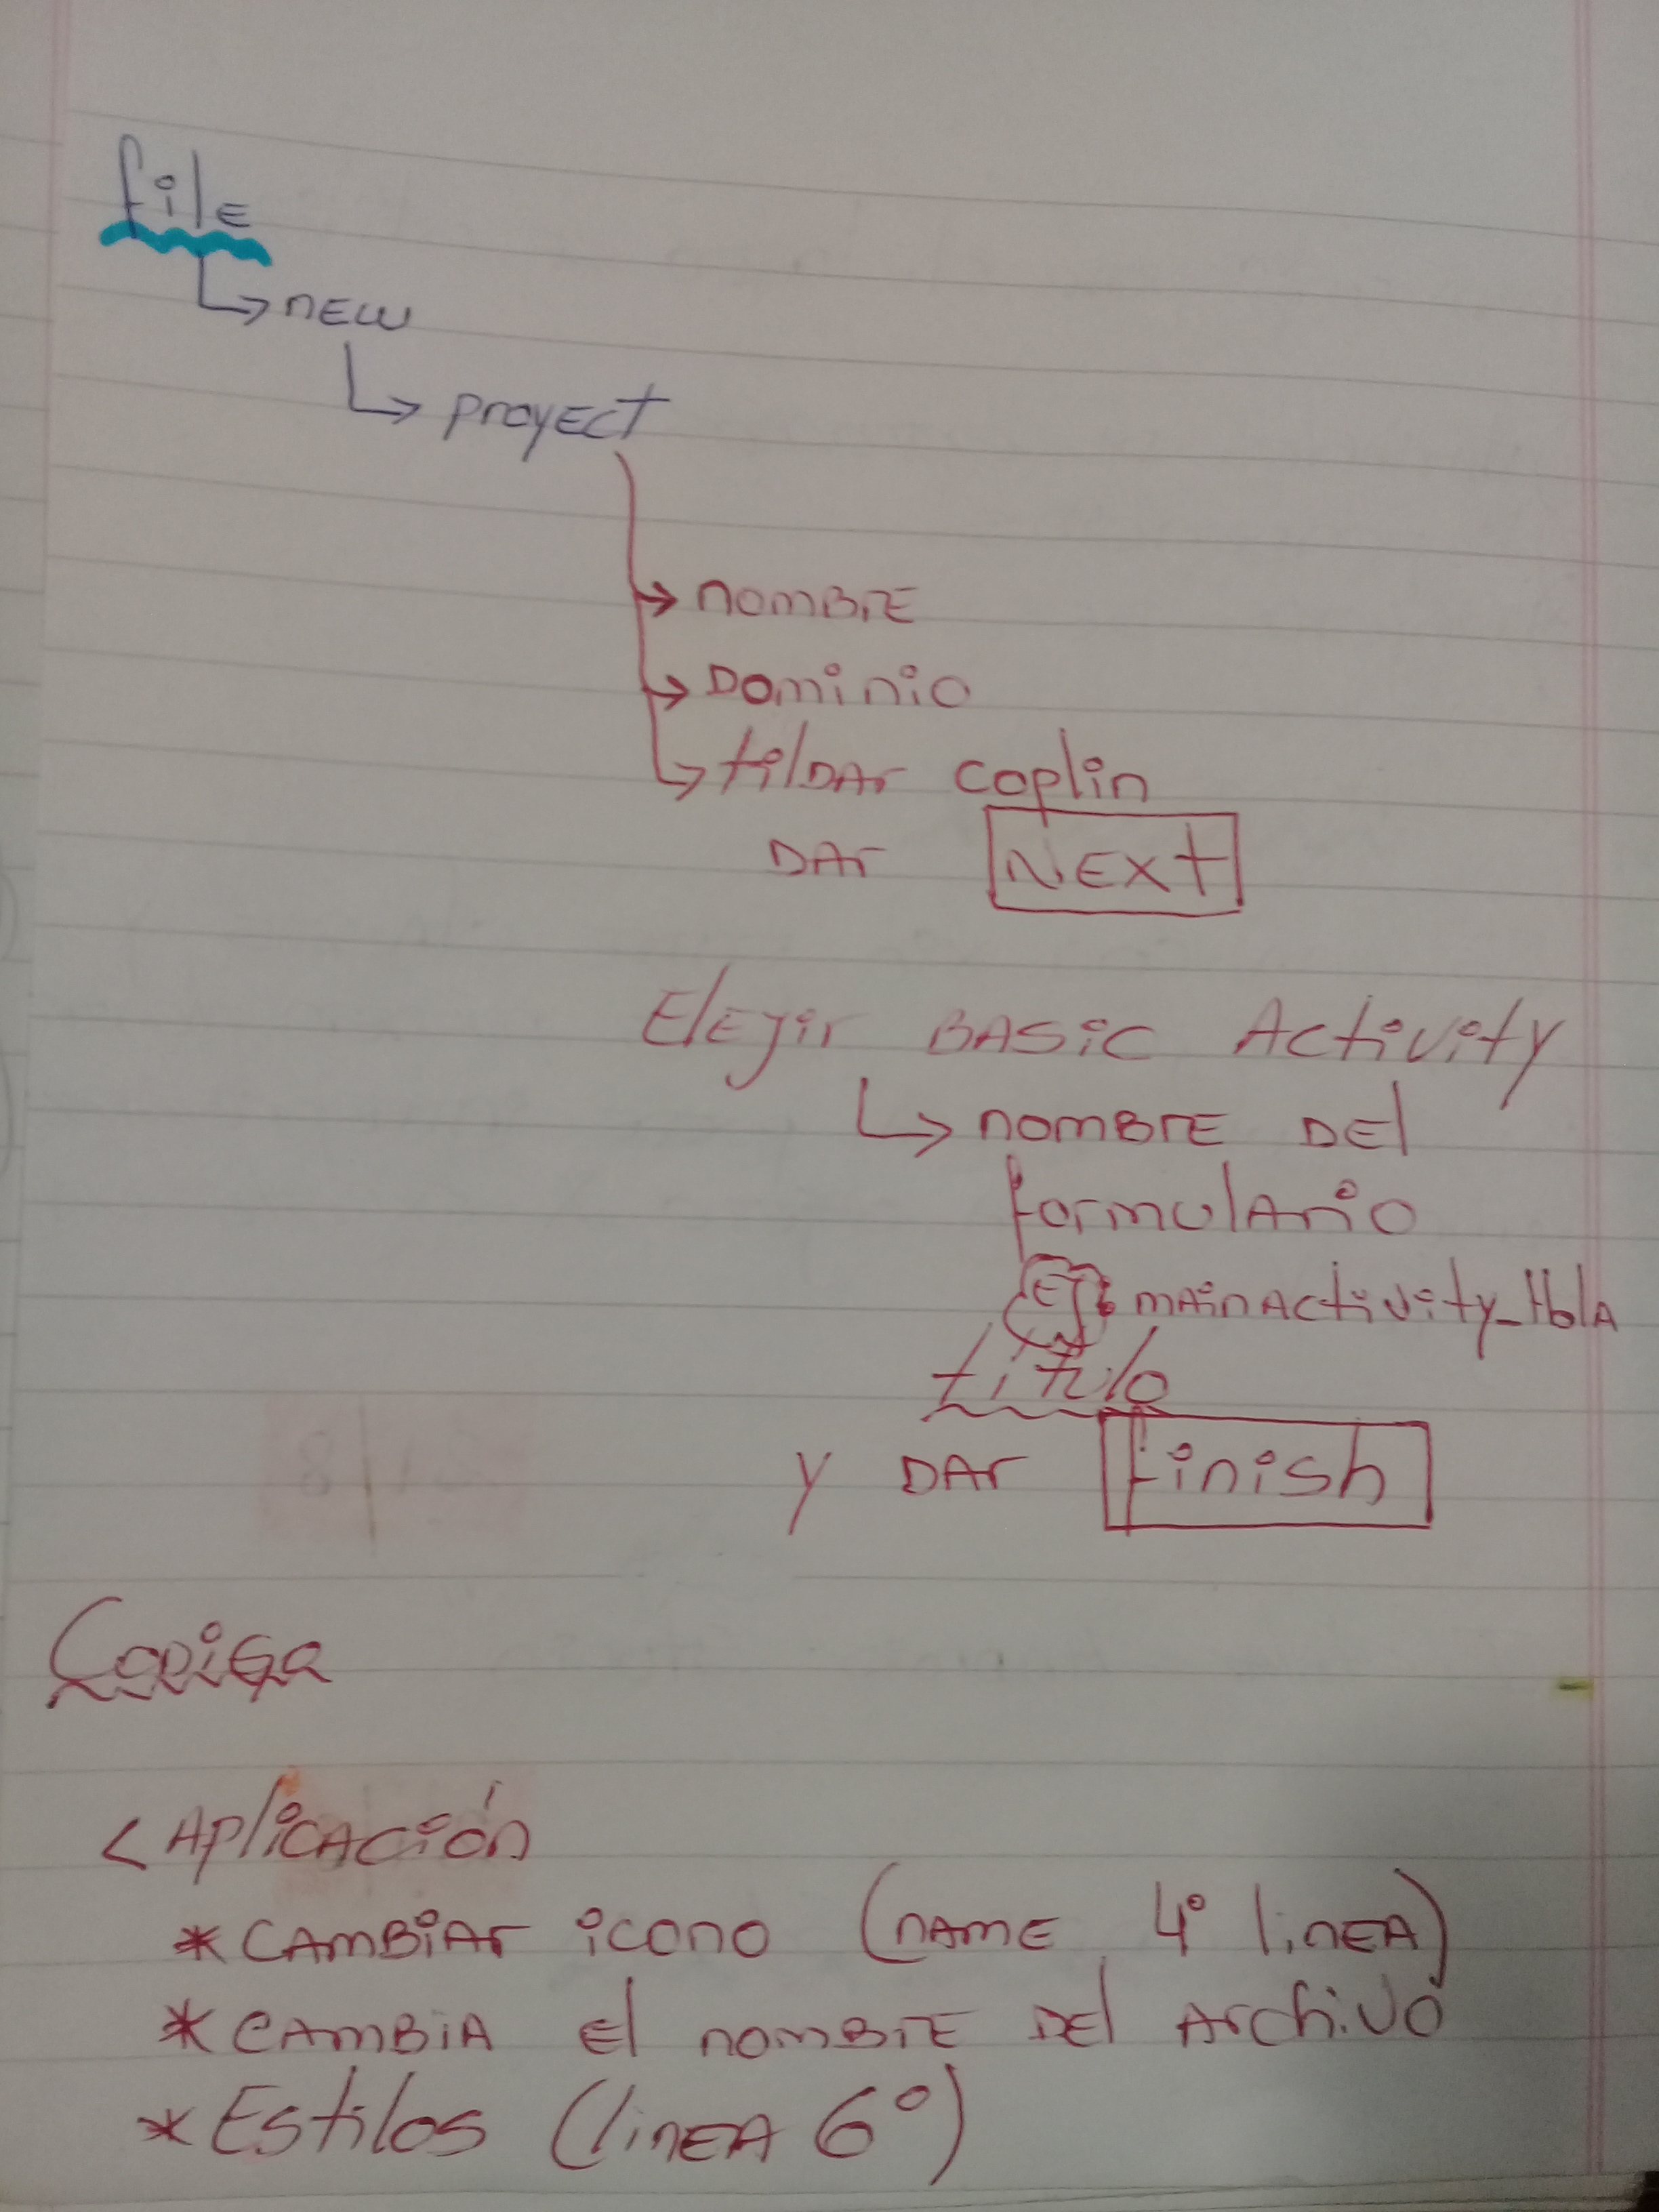 file
new
proyect
nombre
Dominio
tildar coplin
Dar Next
Elejir Basic Activity
nombre del
formulario
Ej: mainActivity_
titulo
y Dar finish
Codigo
< Aplicación
* cambiar icono (name 4° linea)
* cambia el nombre del archivo
* Estilos (linea 6°)